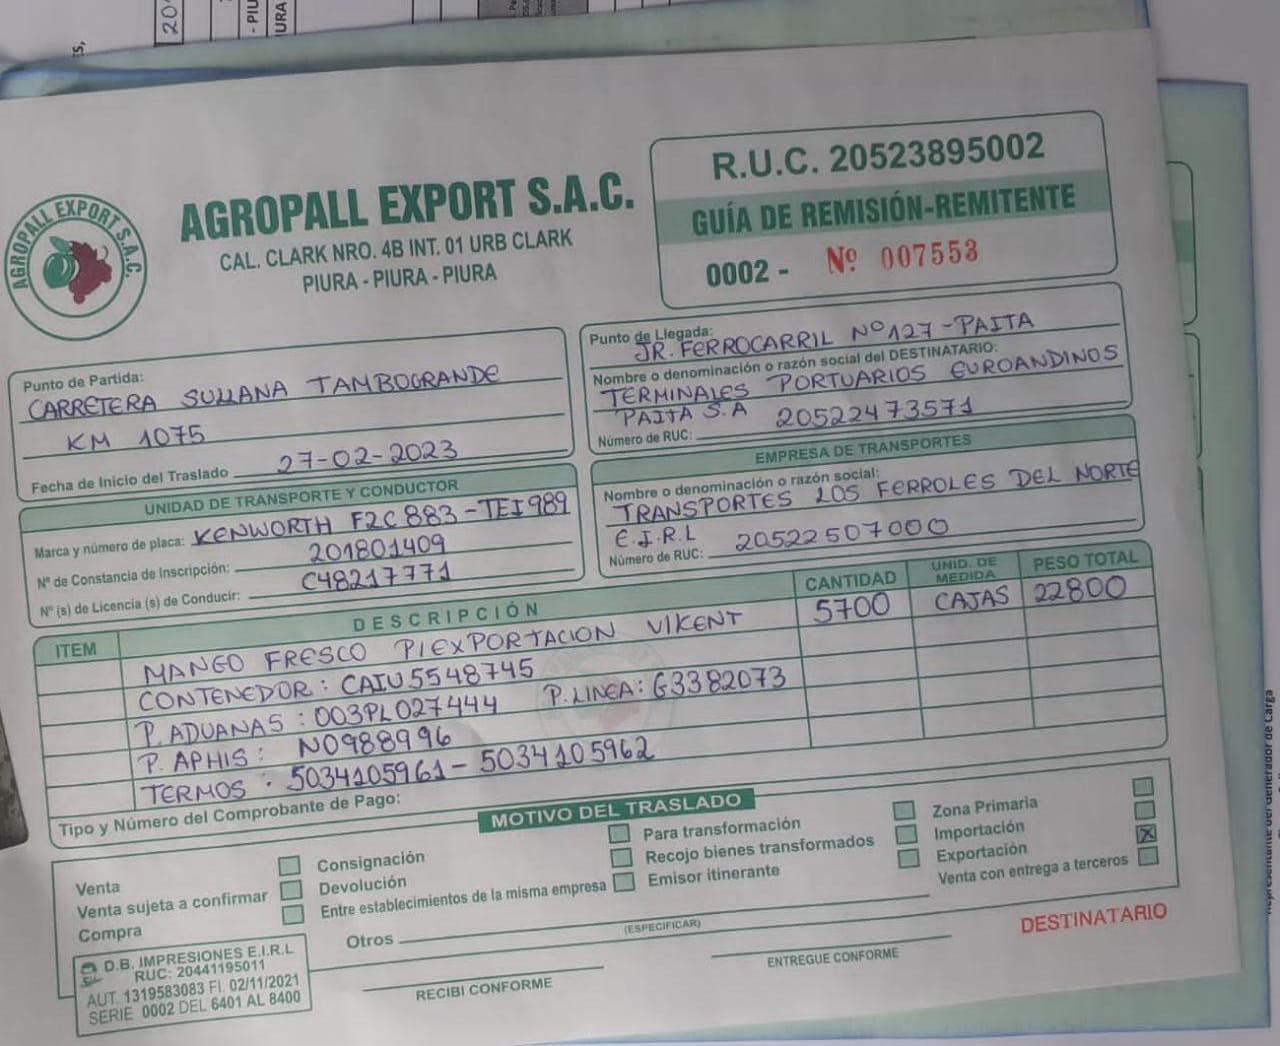 AGROPALL EXPORT S.A.C.
AGROPALL EXPORT S.A.C.
CAL. CLARK NRO. 4B INT. 01 URB CLARK
PIURA - PIURA - PIURA
R.U.C. 20523895002
GUÍA DE REMISIÓN-REMITENTE
0002 - Nº 007553
Punto de Partida:
CARRETERA SULLANA TAMBOGRANDE
KM 1075
Fecha de Inicio del Traslado 27-02-2023
Punto de Llegada:
JR. FERROCARRIL Nº 127 - PAITA
Nombre o denominación o razón social del DESTINATARIO:
TERMINALES PORTUARIOS EUROANDINOS
PAITA S.A 20522473571
Número de RUC:
UNIDAD DE TRANSPORTE Y CONDUCTOR
Marca y número de placa: KENWORTH F2C883 - TEI989
Nº de Constancia de Inscripción: 201801409
Nº (s) de Licencia (s) de Conducir: C48217771
EMPRESA DE TRANSPORTES
Nombre o denominación o razón social:
TRANSPORTES LOS FERROLES DEL NORTE
E.I.R.L 20522507000
Número de RUC:
ITEM DESCRIPCIÓN CANTIDAD UNID. DE MEDIDA PESO TOTAL
MANGO FRESCO P/EXPORTACION VIKENT 5700 CAJAS 22800
CONTENEDOR: CAIU5548745
P. ADUANAS: 003PL027444 P. LINEA: G3382073
P. APHIS: N0988996
TERMOS: 5034105961 - 5034105962
Tipo y Número del Comprobante de Pago:
MOTIVO DEL TRASLADO
Venta
Venta sujeta a confirmar
Compra
Consignación
Devolución
Entre establecimientos de la misma empresa
Para transformación
Recojo bienes transformados
Emisor itinerante
Zona Primaria
Importación
Exportación X
Venta con entrega a terceros
Otros
(ESPECIFICAR)
D.B. IMPRESIONES E.I.R.L
RUC: 20441195011
AUT. 1319583083 FI. 02/11/2021
SERIE 0002 DEL 6401 AL 8400
RECIBI CONFORME
ENTREGUE CONFORME
DESTINATARIO
Representante del Generador de Carga